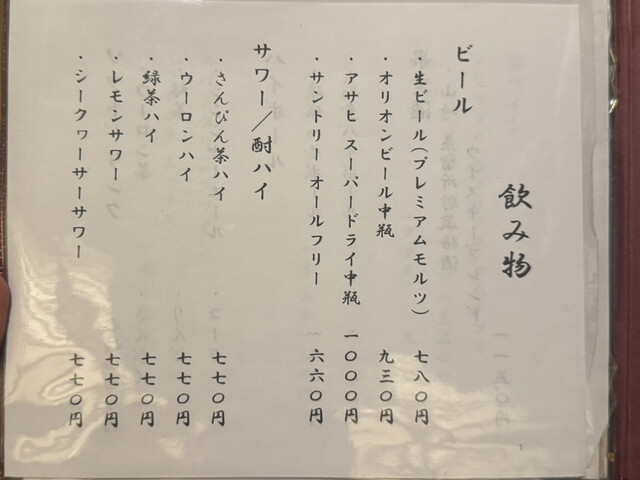 飲み物
ビール
・生ビール(プレミアムモルツ) 七八〇円
・オリオンビール中瓶 九三〇円
・アサヒスーパードライ中瓶 一〇〇〇円
・サントリーオールフリー 六六〇円
サワー／酎ハイ
・さんぴん茶ハイ 七七〇円
・ウーロンハイ 七七〇円
・緑茶ハイ 七七〇円
・レモンサワー 七七〇円
・シークヮーサーサワー 七七〇円